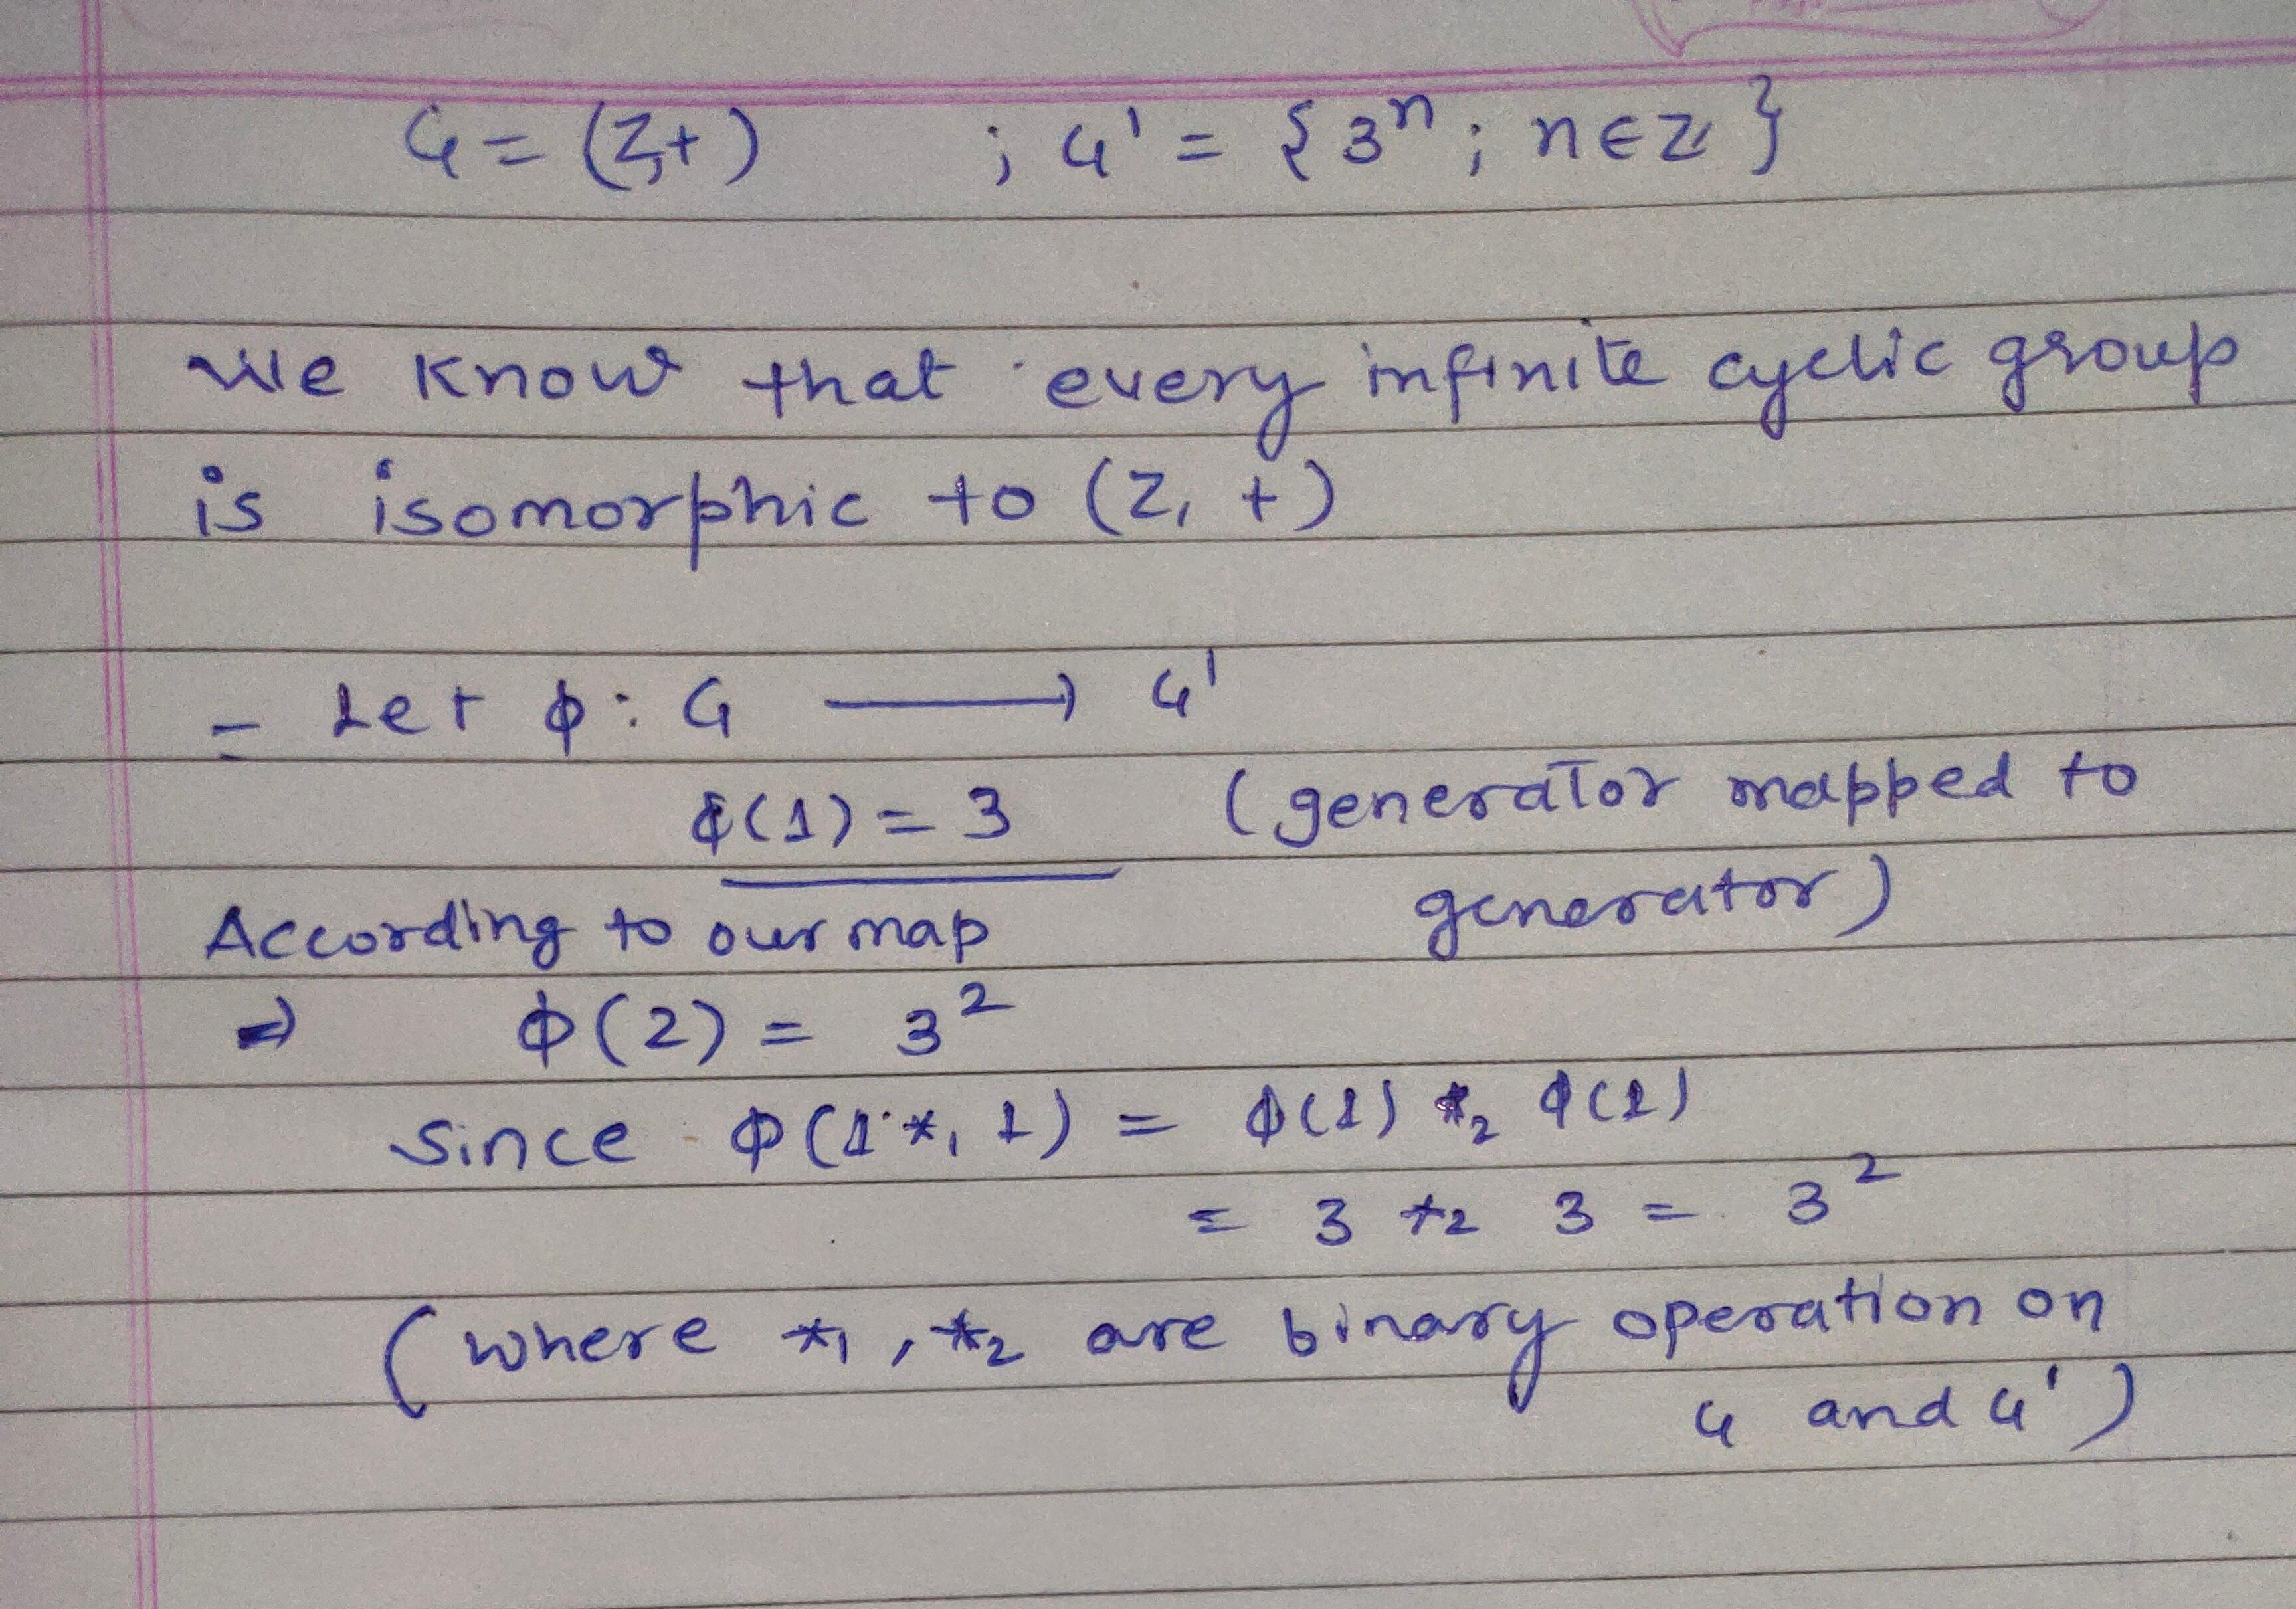 G = (Z,+) ; G' = {3ⁿ ; n∈Z}
We know that every infinite cyclic group
is isomorphic to (Z, +)
- Let ϕ : G ⟶ G'
ϕ(1) = 3 (generator mapped to
generator)
According to our map
⇒ ϕ(2) = 3²
Since ϕ(1 *₁ 1) = ϕ(1) *₂ ϕ(1)
= 3 *₂ 3 = 3²
(where *₁, *₂ are binary operation on
G and G')